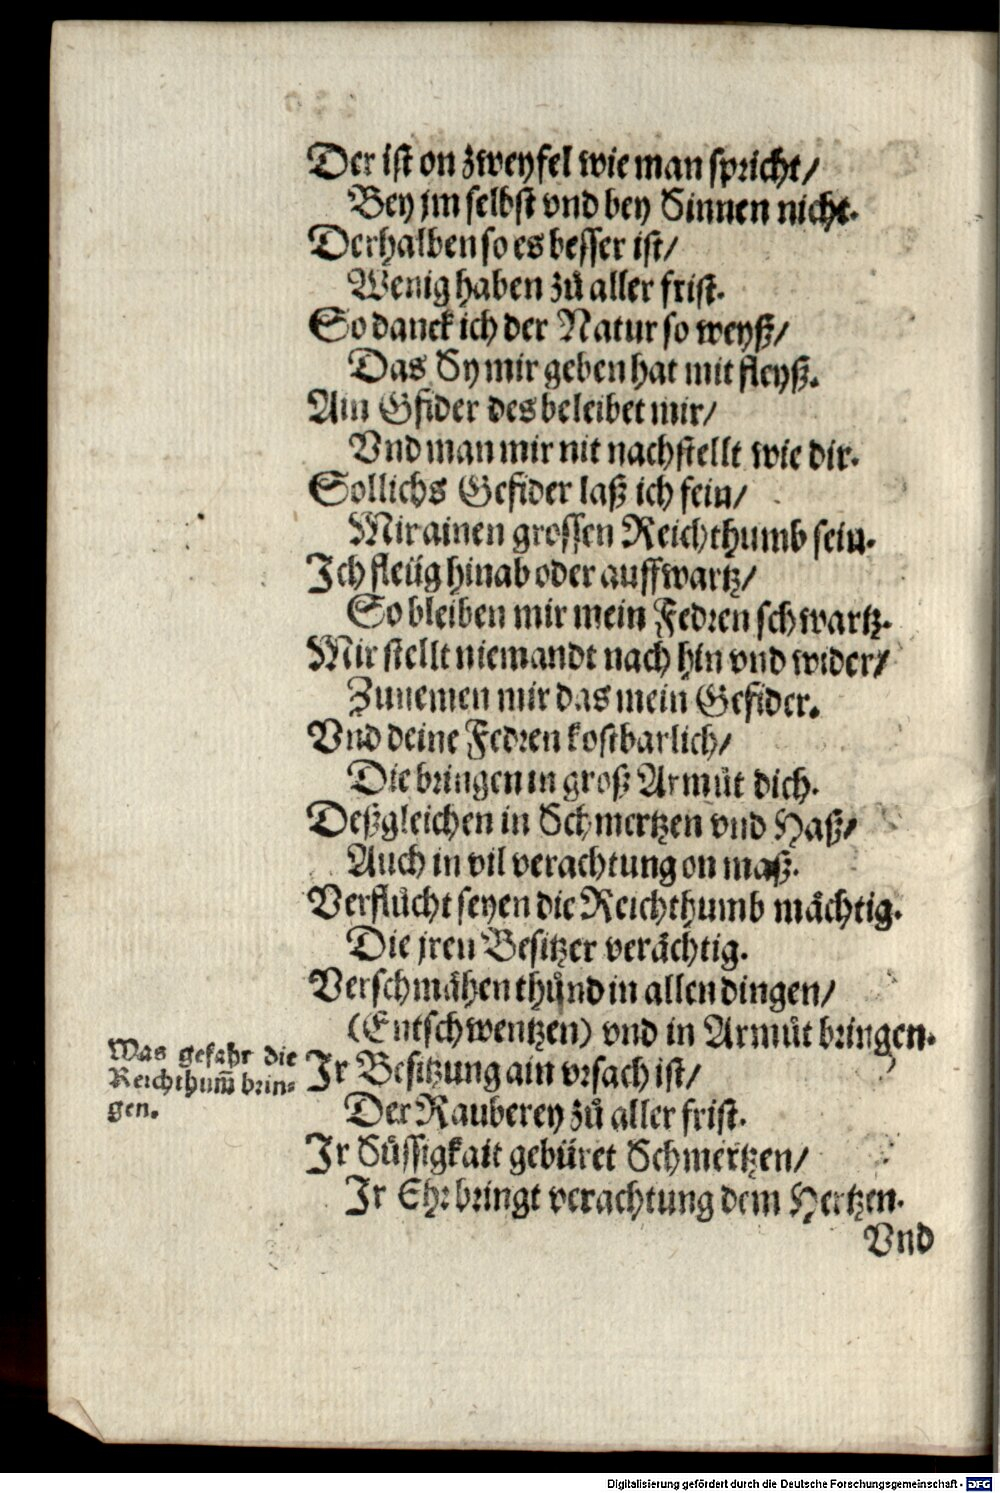 Der ist on zweyfel wie man spricht/
Bey jm selbst vnd bey Sinnen nicht.
Derhalben so es besser ist/
Wenig haben zů aller frist.
So danck ich der Natur so weyß/
Das Sy mir geben hat mit fleyß.
Ain Gfider des beleibet mir/
Vnd man mir nit nachstellt wie dir.
Sollichs Gefider laß ich fein/
Mir ainen grossen Reichthumb sein.
Ich fleüg hinab oder auffwartz/
So bleiben mir mein Fedren schwartz.
Mir stellt niemandt nach hin vnd wider/
Zunemen mir das mein Gefider.
Vnd deine Fedren kostbarlich/
Die bringen in groß Armůt dich.
Deßgleichen in Schmertzen vnd Haß/
Auch in vil verachtung on maß.
Verflůcht seyen die Reichthumb mächtig.
Die jren Besitzer verächtig.
Verschmähen thůnd in allen dingen/
(Entschwentzen) vnd in Armůt bringen.
Was gefahr die
Reichthum̃ brin-
gen.
Ir Besitzung ain vrsach ist/
Der Rauberey zů aller frist.
Ir Süssigkait gebüret Schmertzen/
Ir Ehr bringt verachtung dem Hertzen.
Vnd
Digitalisierung gefördert durch die Deutsche Forschungsgemeinschaft - DFG